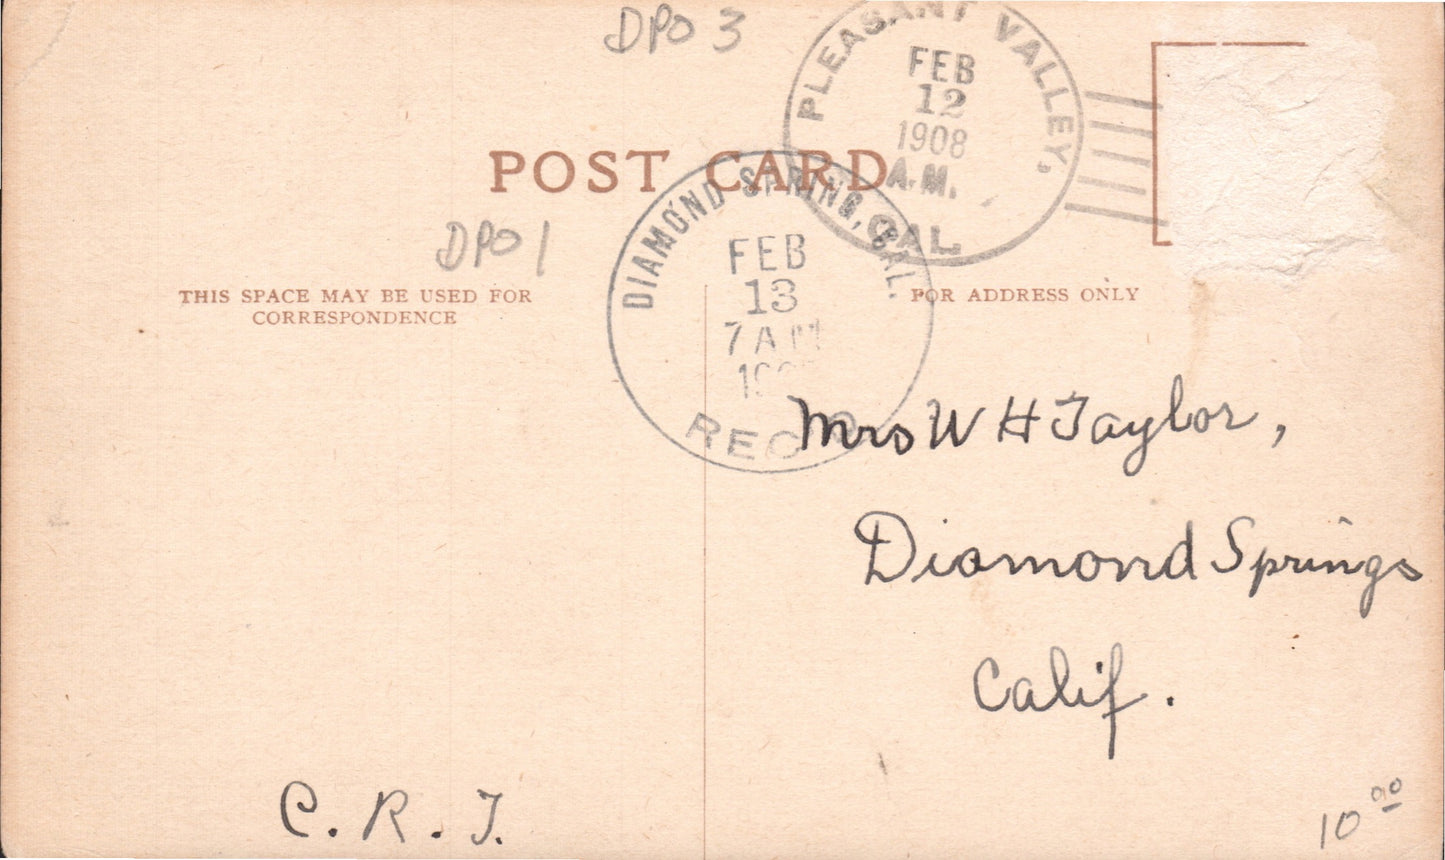 DPO 3
PLEASANT VALLEY,
FEB
12
1908
A.M.
CAL.
POST CARD
DPO 1
DIAMOND SPRING, CAL.
FEB
13
7 AM
REC'D
THIS SPACE MAY BE USED FOR
CORRESPONDENCE
FOR ADDRESS ONLY
Mrs W H Taylor,
Diamond Springs
Calif.
C. R. T.
10 00